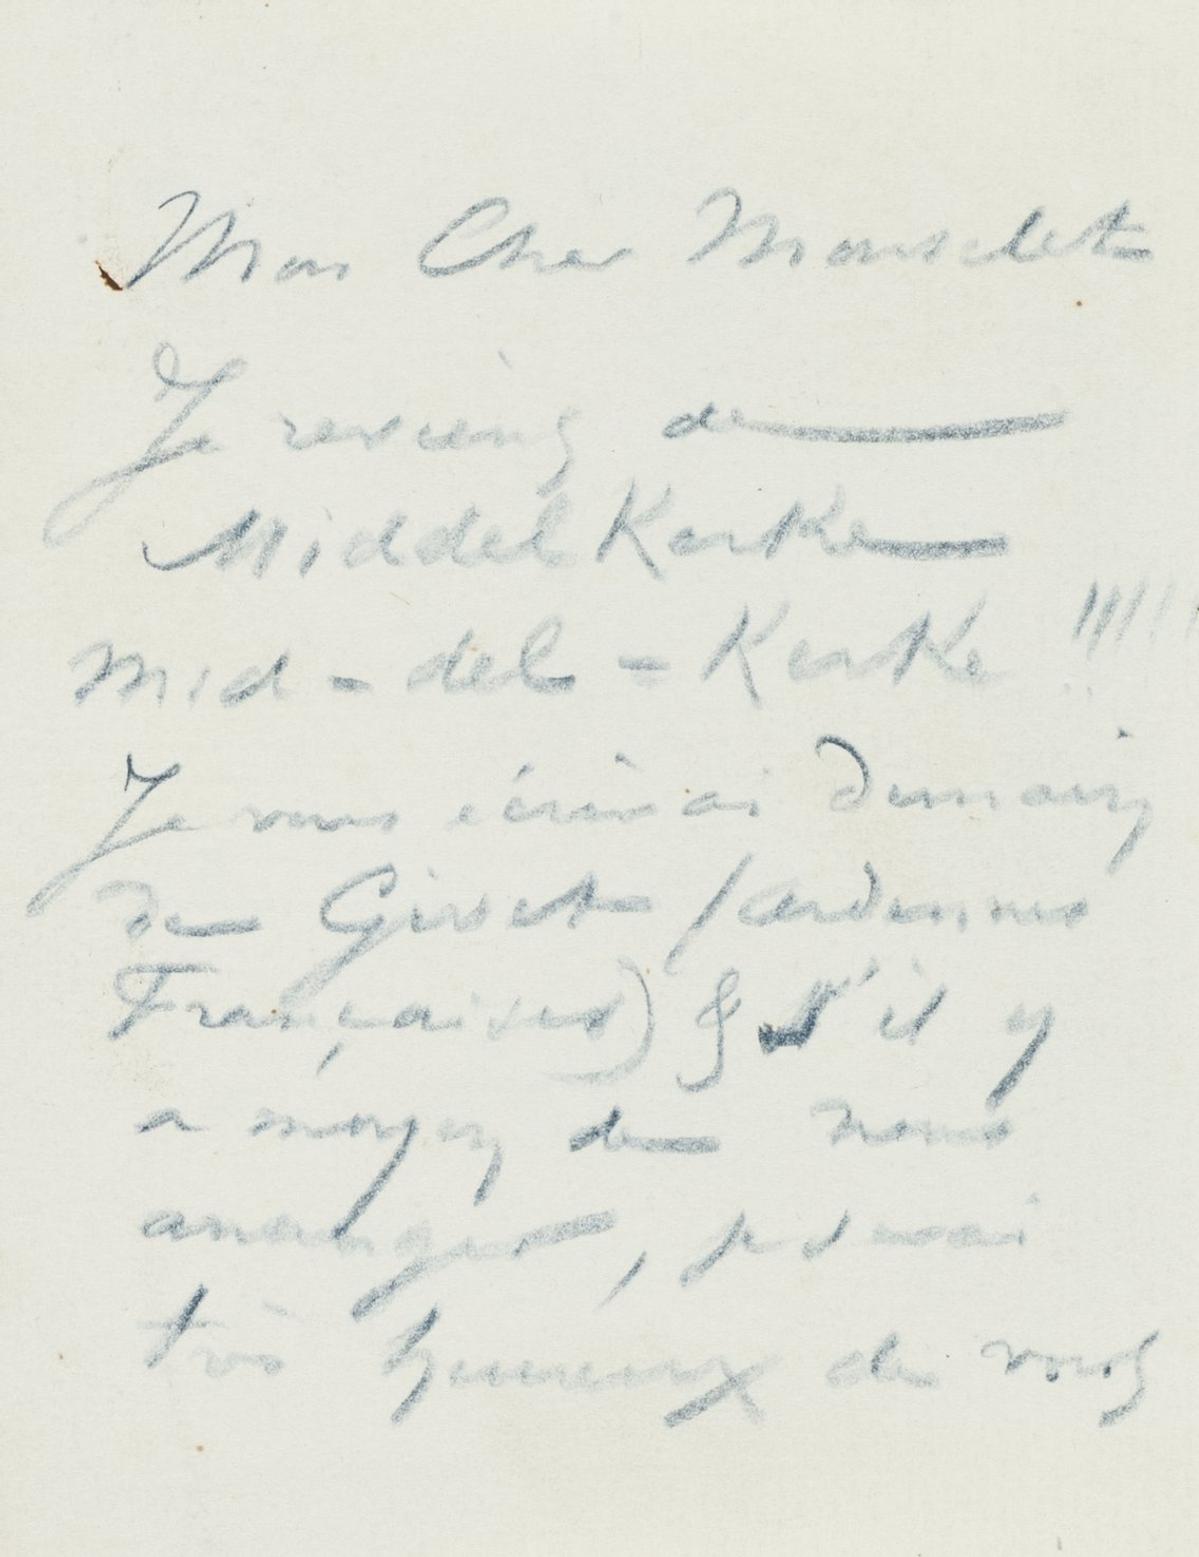 Mon Cher Monselet
Je reviens de
MiddelKerke
Mid-del-Kerke !!!!!!
Je vous écrirai demain
de Givet (ardennes
Françaises) & s'il y
a moyen de nous
arranger, je serai
très heureux de vous